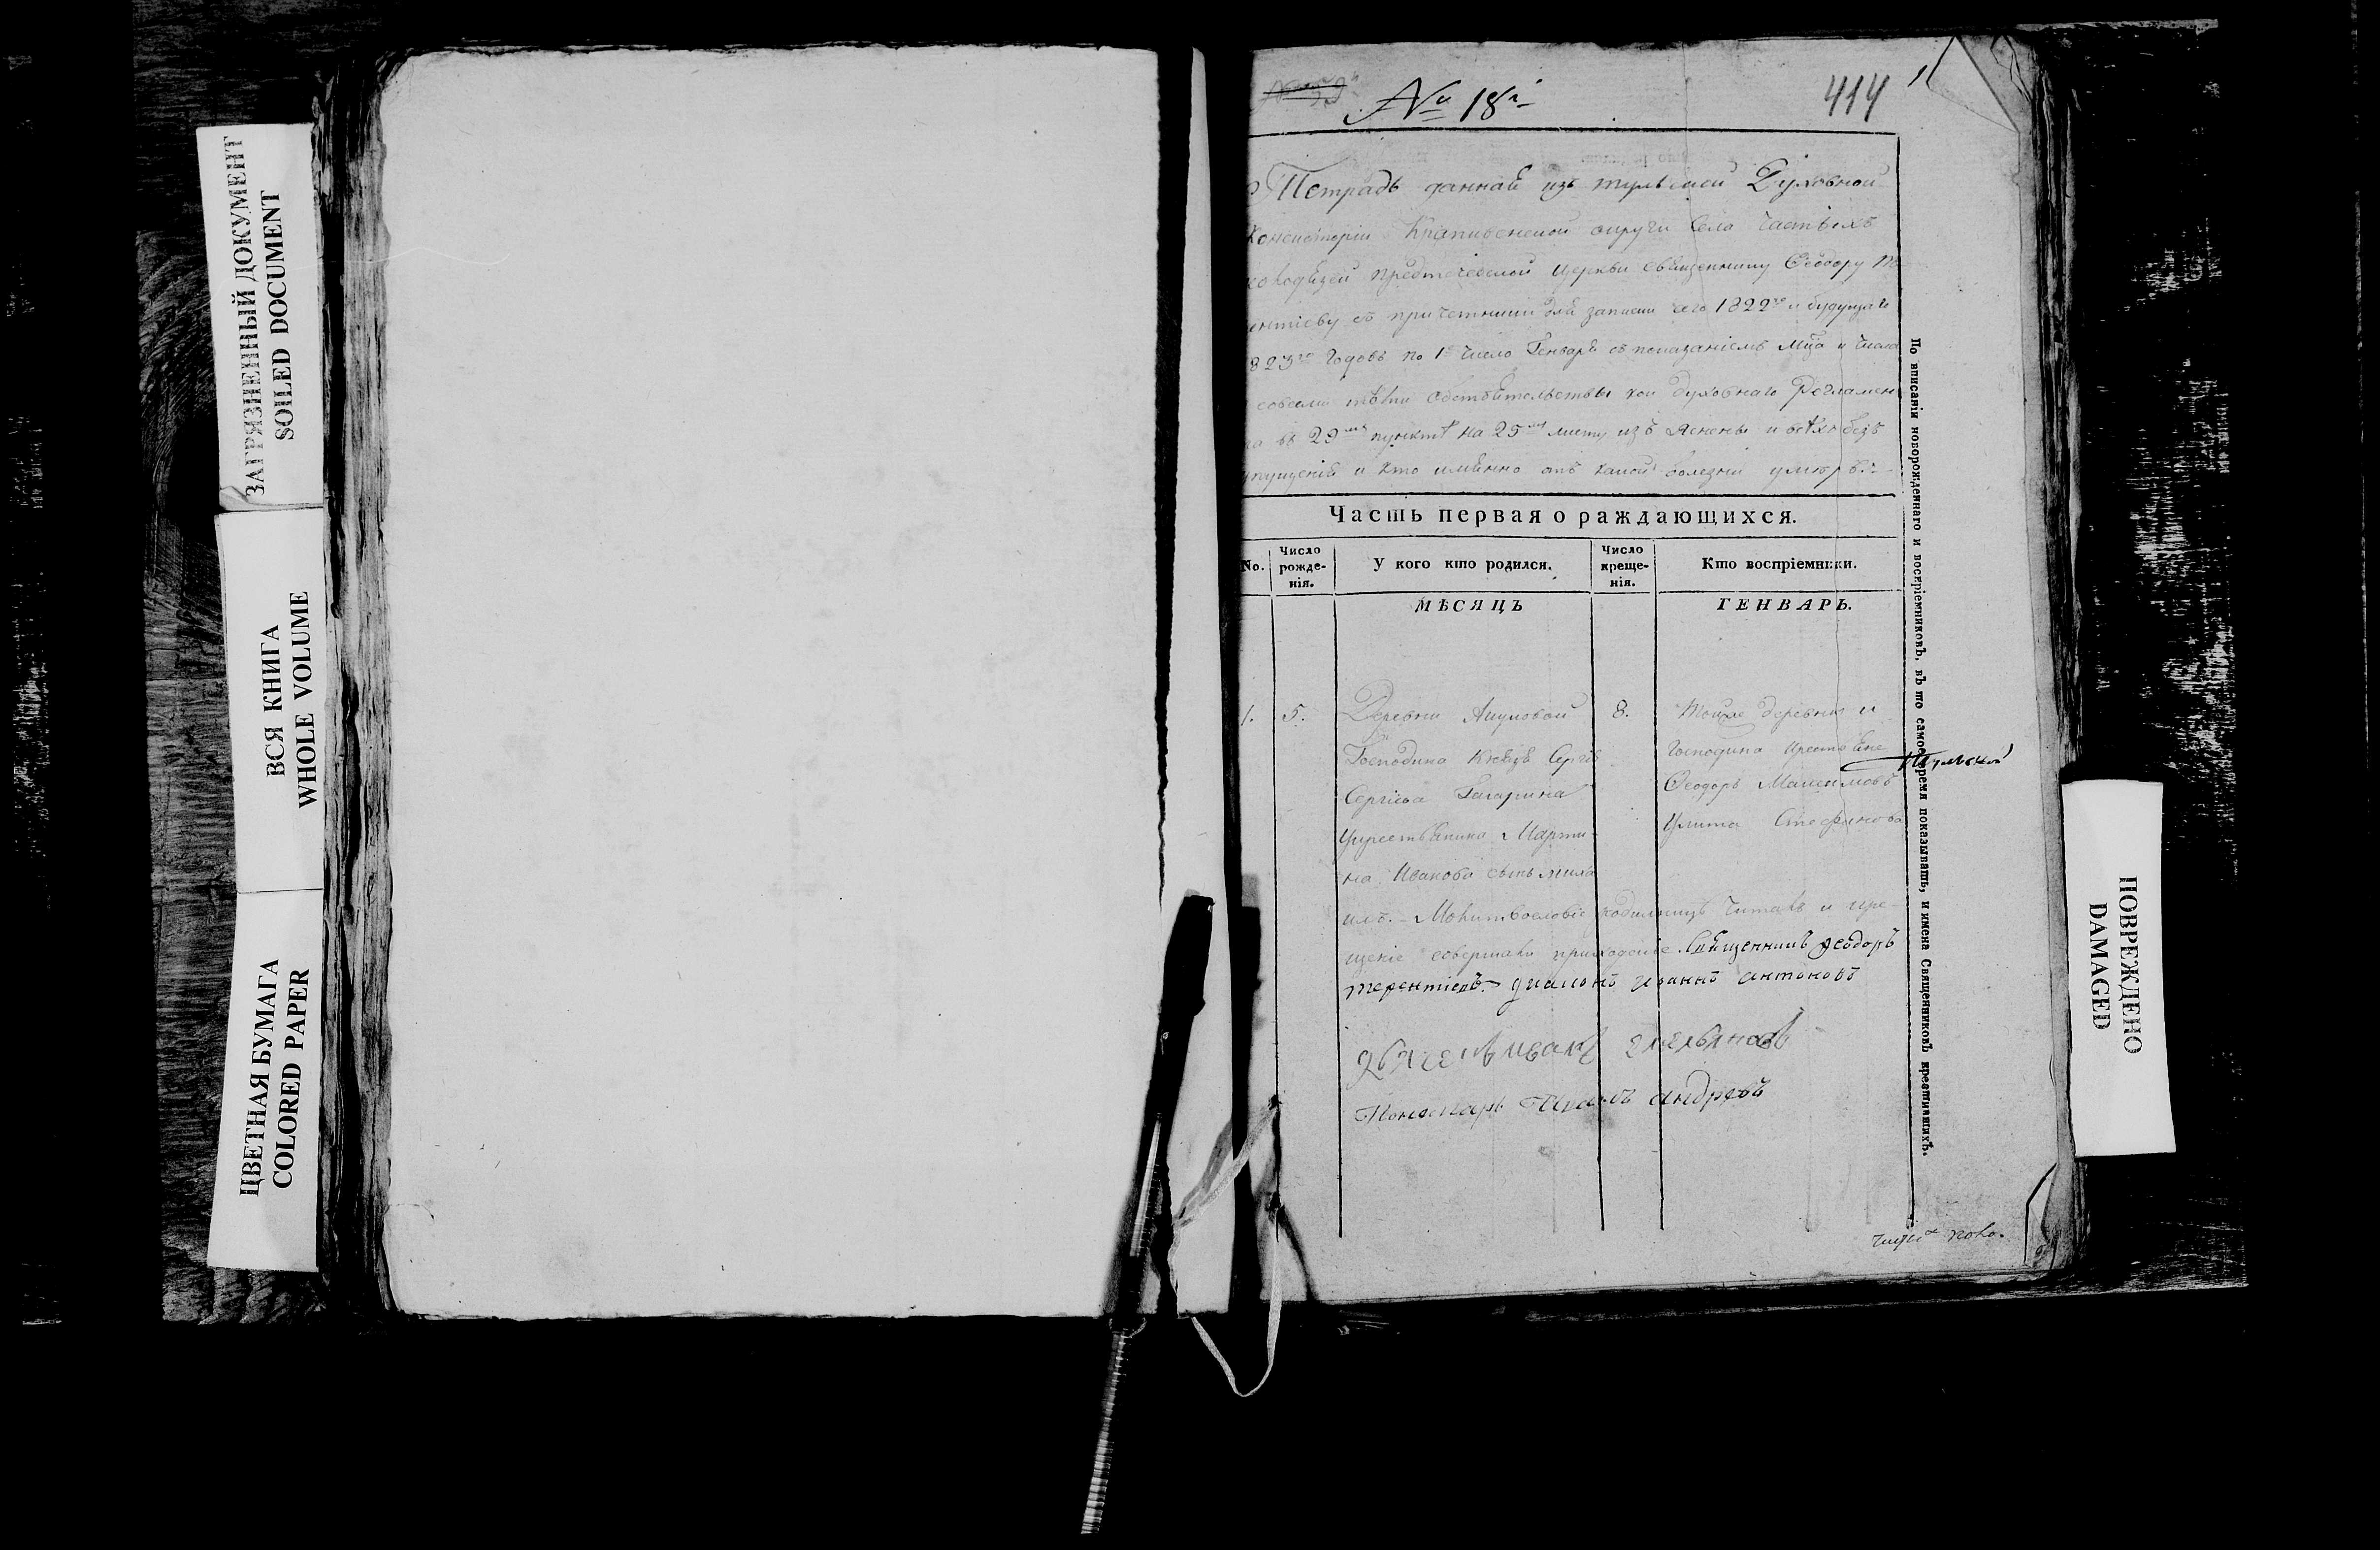 ЗАГРЯЗНЕННЫЙ ДОКУМЕНТ
SOILED DOCUMENT
ВСЯ КНИГА
WHOLE VOLUME
ЦВЕТНАЯ БУМАГА
COLORED PAPER
№ 18й
414
Тетрадь данная изъ тульской Духовной
Консисторіи Крапивенской округи Села Частыхъ
Колодезей Предтечевской церкви священнику Ѳеодору
ентіеву съ причетники для записки сего 1822го и будущаго
823го Годовъ по 1е число Генваря съ показаніемъ мца и числа
совсеми обстоятельствы кои Духовнаго Регламен
въ 29мъ пунктѣ на 25мъ листу изъ Яснены и безъ
пущенія и кто имянно отъ какой болезни умиръ
Часть первая о раждающихся.
No.
Число рожде-нія.
У кого кто родился.
Число креще-нія.
Кто воспріемники.
МѢСЯЦЪ
ГЕНВАРЬ.
1. 5. Деревни 8. Тойже деревни и
Господина Князя Сергѣя Господина
Сергіева Гагарина Ѳеодоръ Максимовъ
укрестьянина Марти Улита Стефанова
на Иванова сынъ миха
илъ. Молитвословіе родильницѣ читалъ и кре-
щеніе совершалъ приходской Священникъ Ѳеодоръ
терентіевъ диаконъ иоаннъ антоновъ
дьячекъ иванъ емельяновъ
Пономарь Иванъ андреевъ
Тульской
По вписаніи новорожденнаго и воспріемниковъ, въ то самое время показывать, и имена Священниковъ крестившихъ.
ПОВРЕЖДЕНО
DAMAGED